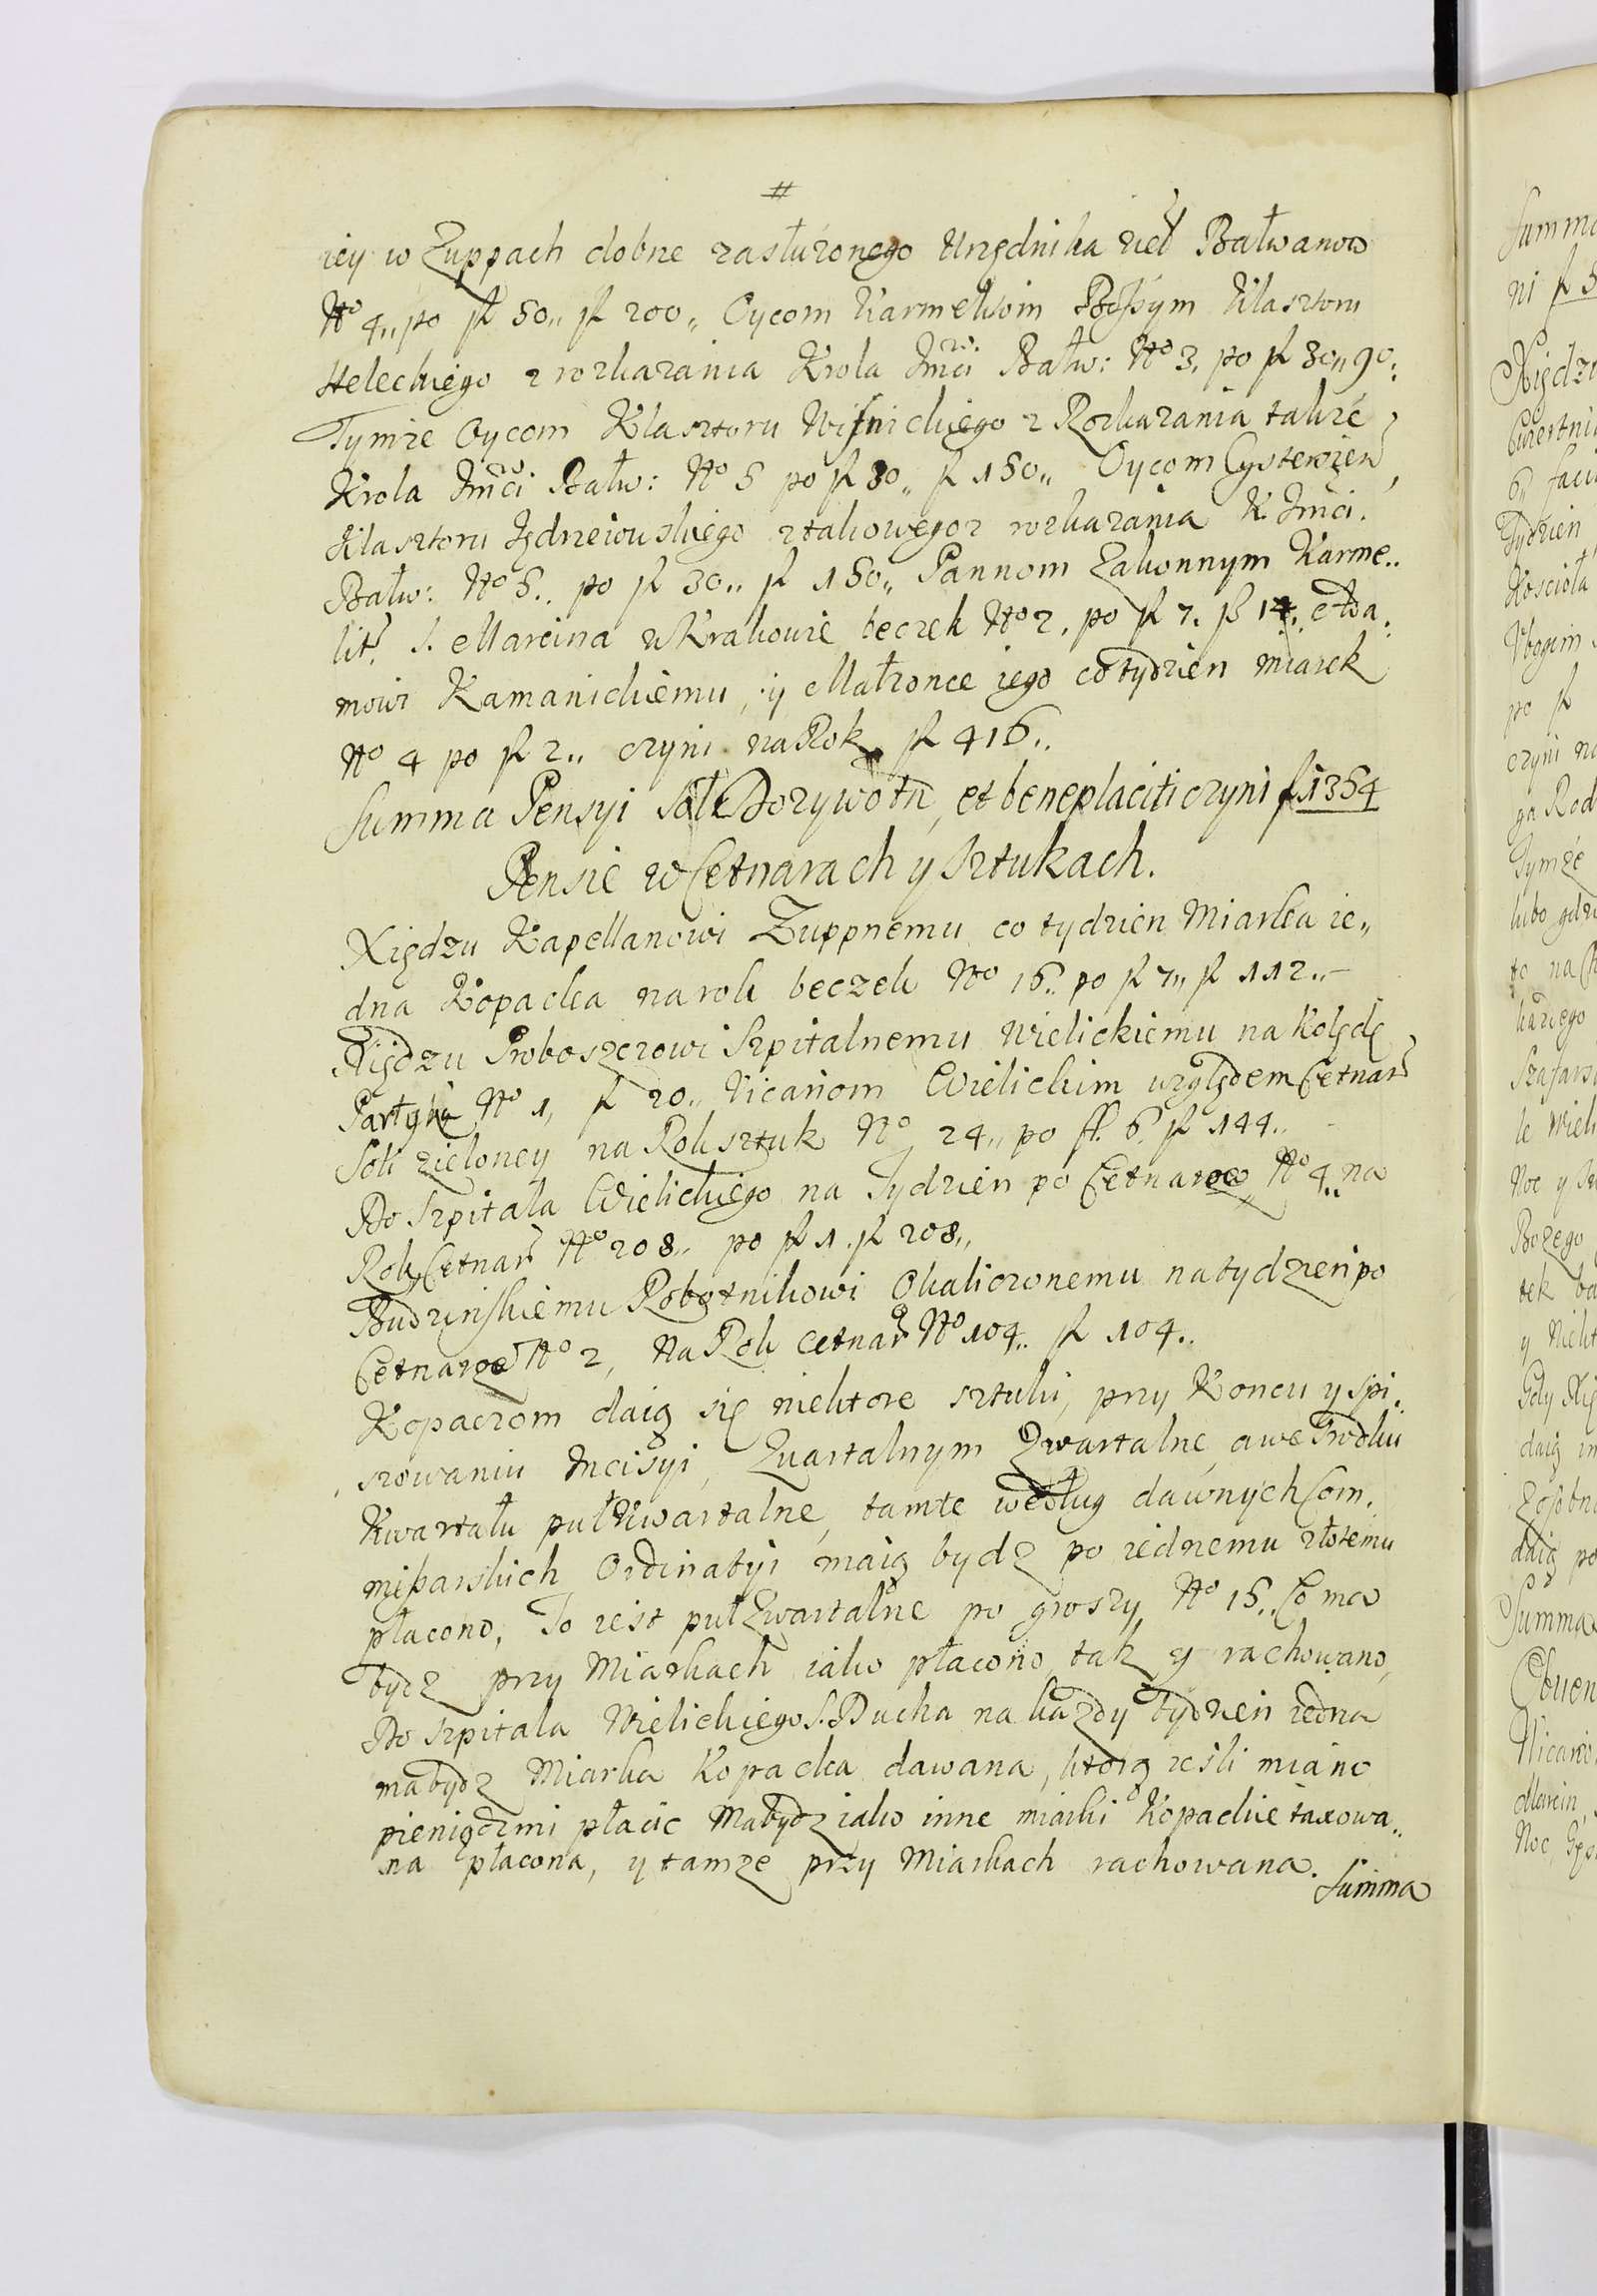 #
iey w Zuppach dobrze zasłużonego Urzędnika Bałwanow
No 4,, po fl 50,, fl 200,, Oycom Karmelitom Bossym Klasztoru
z rozkazania Krola Jmći Bałw: No 3. po fl 30,, 90:
Tymże Oycom Klasztoru Wisnickiego z Rozkazania także
Krola Jmći Bałw: No 5 po fl 30,, fl 150,, Oycom Cystersien
Klasztoru Jędrzeiowskiego z takowegoz rozkazania K. Jmći.
Bałw: No 5.. po fl 30.. fl 150,, Pannom Zakonnym Karme..
lit: S. Marcina w Krakowie beczek No 2, po fl 7. ß 14.. Ada.
mowi Kamanickiemu, y Małżonce iego co tydzien miarek
No 4 po fl 2.. czyni na Rok fl 416..
Summa Pensyi Soli Dozywotn, et beneplaciti czyni f 1354
Pensie w Cetnarach y Sztukach.
Xiędzu Kapellanowi Zuppnemu co tydzien Miarka ie,,
dna Kopacka na rok beczek No 16.. po fl 7,, fl 112..
Xiędzu Proboszczowi Szpitalnemu Wielickiemu na Kolędę
Partyka No 1, fl 20.. Vicariom Wielickim względem Cetnar
Soli zieloney na Rok sztuk No 24,, po fl. 6. fl 144..
Do Szpitala Wielickiego na Tydzien po Cetnarow No 4.. na
Rok Cetnar No 208.. po fl 1. fl 208,,
Budzinskiemu Robotnikowi Okaliczonemu na tydzien po
Cetnarze No 2, Na Rok Cetnar No 104.. fl 104..
Kopaczom daią się niektore sztuki, przy Koncu y spi..
sowaniu Incisyi, Quartalnym Quartalne, a we srodku
Kwartału puł Kwartalne, tamte według dawnych Com.
mißarskich Ordinatyi maią bydz po iednemu złotemu
płacono, To iest puł Quartalne po groszy No 15.. Co ma
bydz przy Miarkach iako płacono tak y rachowano,
Do Szpitala Wielickiego S. Ducha na każdy tydzien iedna
ma bydz Miarka Kopacka dawana, ktorą iesli miano
pieniędzmi płacic Ma bydz iako inne miarki Kopackie taxowa..
na płacona, y tamze przy Miarkach rachowana.
Summa